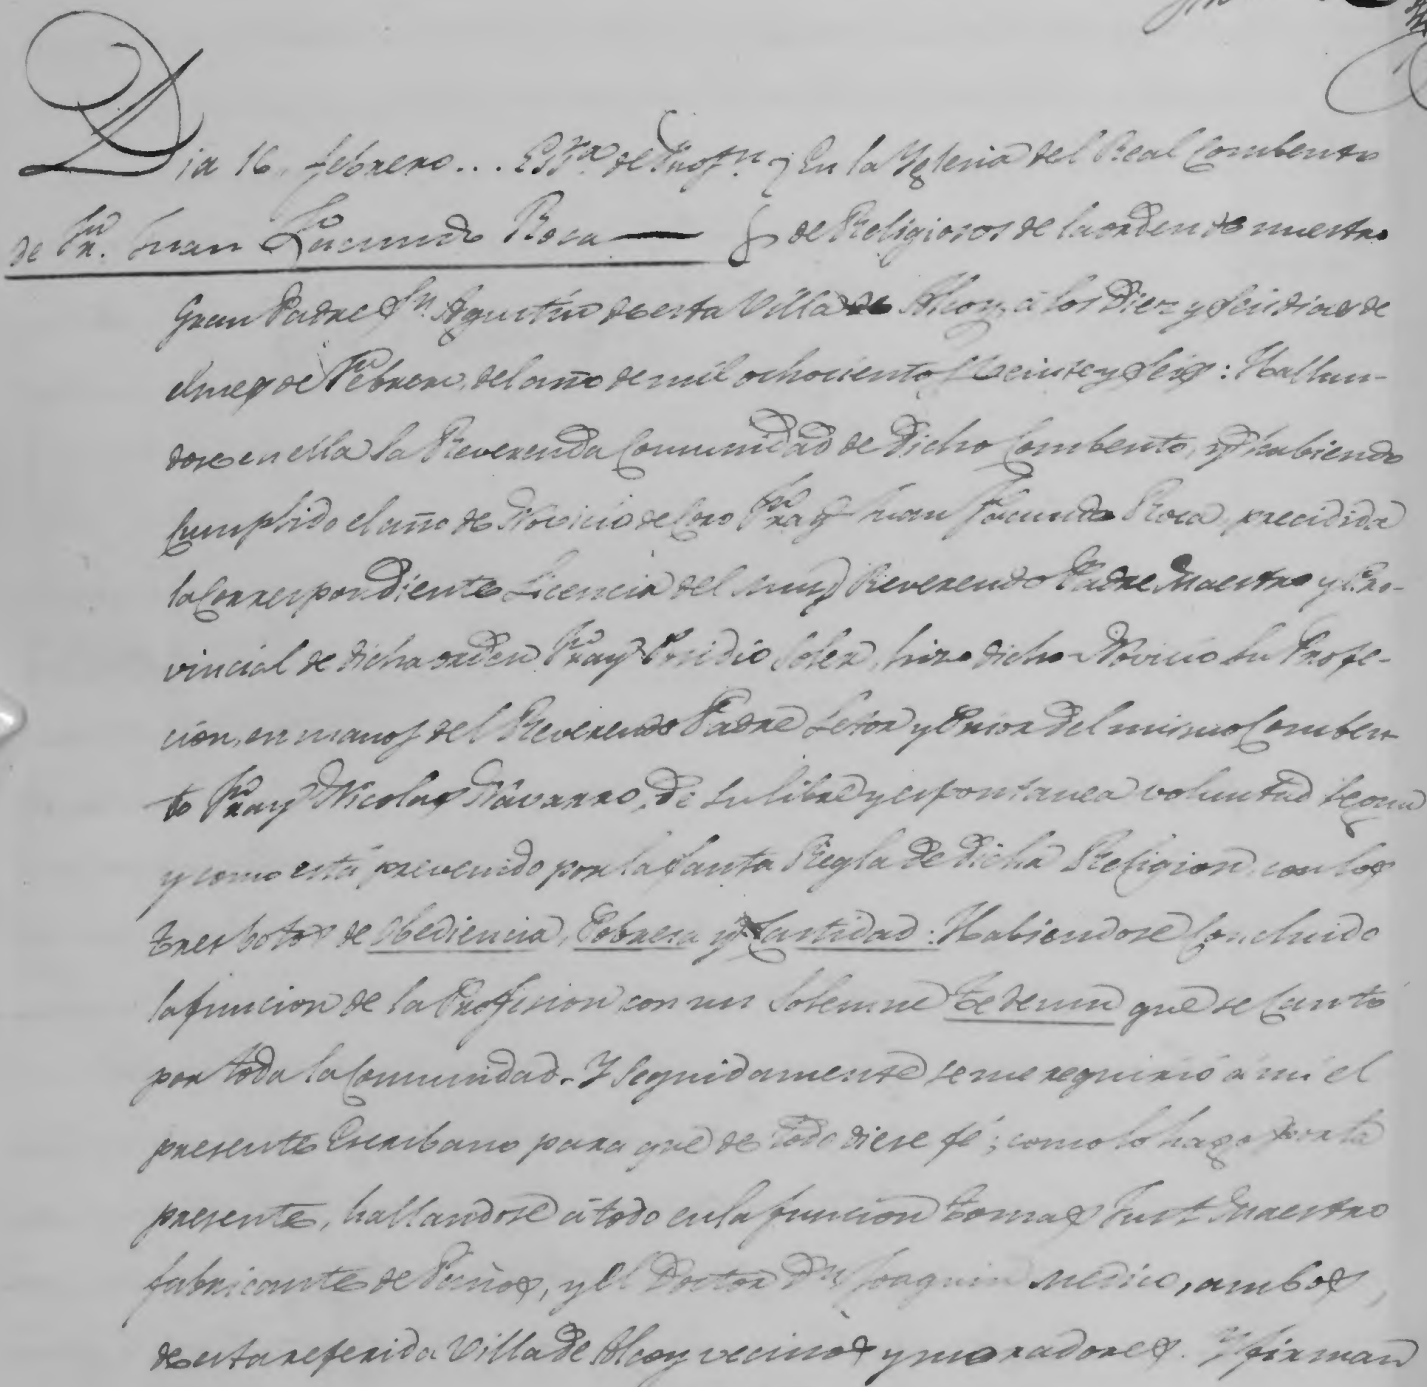 Dia 16, febrero... Essra. de Profn. En la Yglesia del Real Combento
de Fr. Juan Facundo Roca — de Religiosos de la orden de nuestro
Gran Padre Sn. Agustin de esta Villa de Alcoy, á los Diez y seis dias de
el mes de Febrero, del año de mil ochocientos Veinte y seis: Hallan-
dose en ella la Reverenda Comunidad de Dicho Combento, y habiendo
Cumplido el año de Novicio de Coro Fray Juan Facundo Roca, precidida
la Correspondiente Licencia del muy Reverendo Padre Maestro y Pro-
vincial de dicha orden Fray Soler, hizo dicho Novicio su Profe-
cion, en manos del Reverendo Padre Letor y Prior del mismo Comben-
to Fray Nicolas Navarro, de su libre y espontanea voluntad segun
y como está prevenido por la Santa Regla de Dicha Religion, con los
tres botos de Obediencia, Pobresa y Castidad: Habiendose Concluido
la funcion de la Profesion con un Solemne Tedeum que se Cantó
por toda la Comunidad. Y Seguidamente se me requirió á mi el
presente Escribano para que de todo diese fé; como lo hago por la
presente, hallandose á todo en la funcion Tomas Just Maestro
fabricante de Paños, y el Doctor Dn. Joaquin Medico, ambos,
de esta referida Villa de Alcoy vecinos y moradores. Y firman